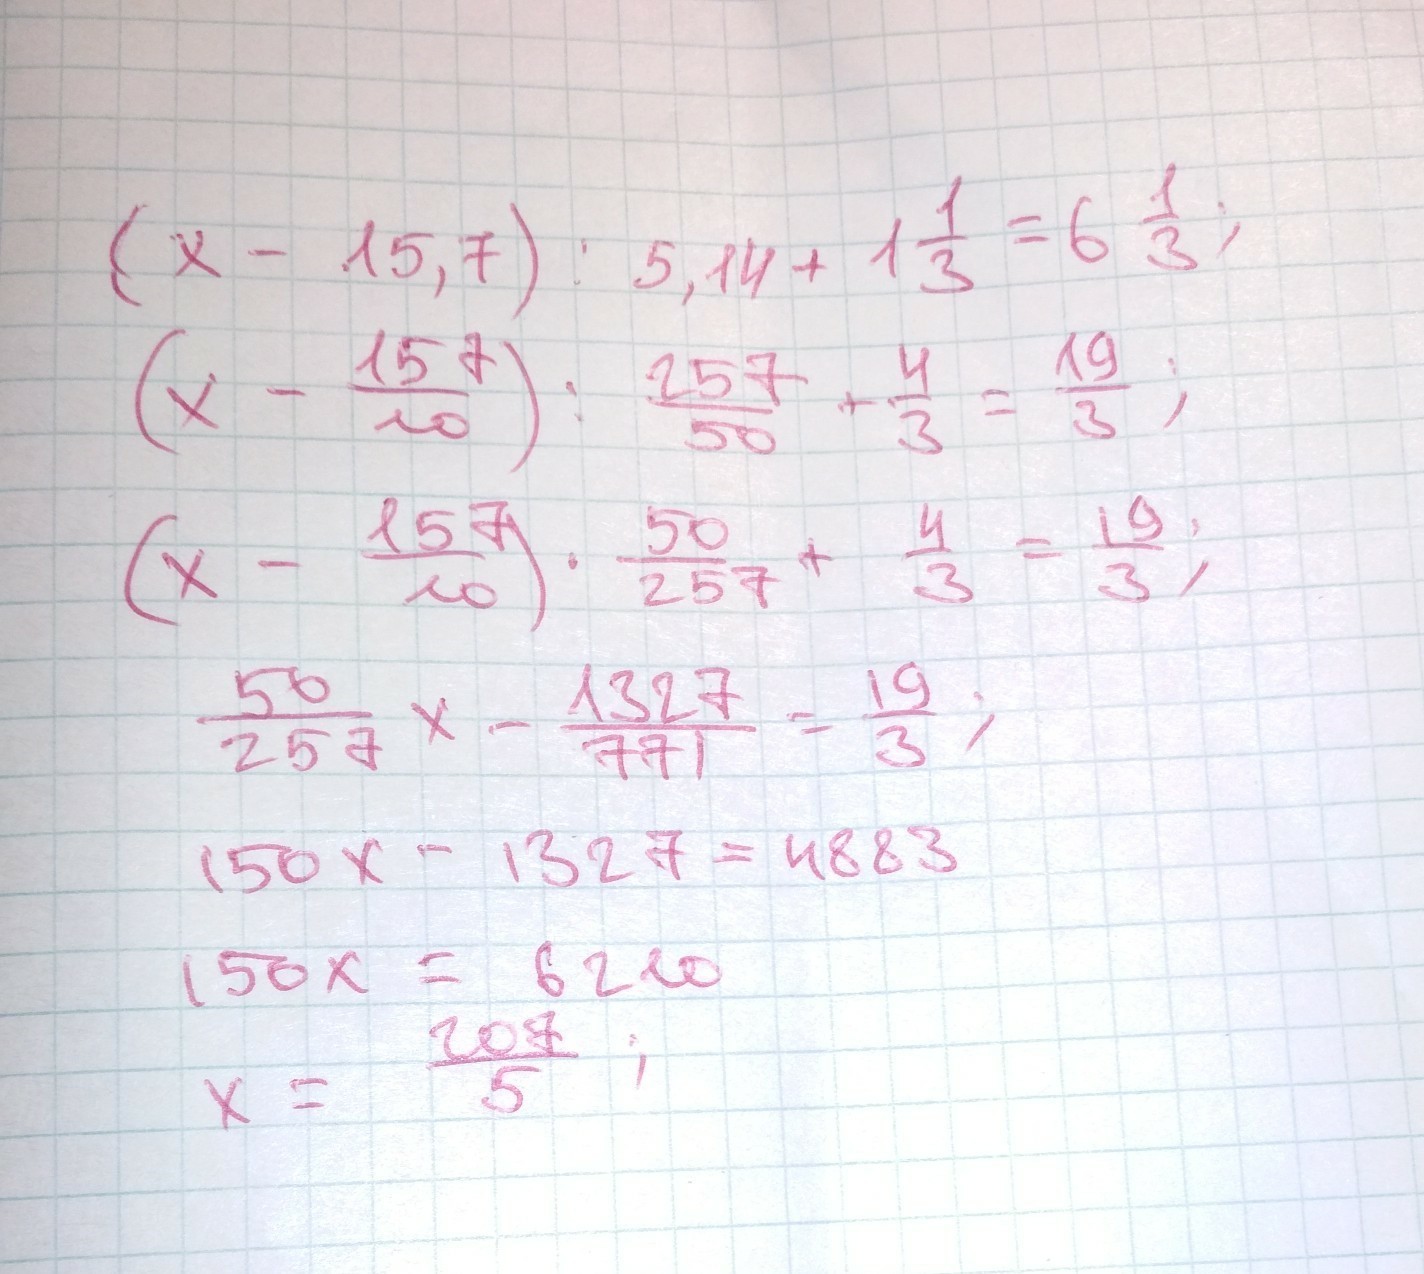 (x - 15,7) : 5,14 + 1 1/3 = 6 1/3;
(x - 157/10) : 257/50 + 4/3 = 19/3;
(x - 157/10) · 50/257 + 4/3 = 19/3;
50/257 x - 1327/771 = 19/3;
150x - 1327 = 4883
150x = 6210
x = 207/5;